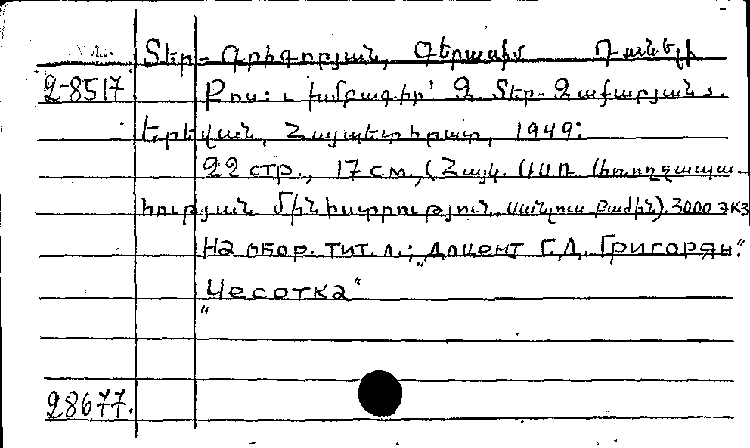 Տեր-Գրիգորյան, Գերասիմ Դանելի
2-8517
Քոս: Խմբագիր՝ Զ. Տեր-Զաքարյան.
Երեվան, Հայպետհրատ, 1949:
22 стр., 17 см, (Հայկ. ՍՍՌ Առողջապա-
հության Մինիստրություն. Սանլուս բաժին). 3000 экз
На обор. тит. л.: „Доцент Г.Д. Григорян."
„Чесотка"
28677.